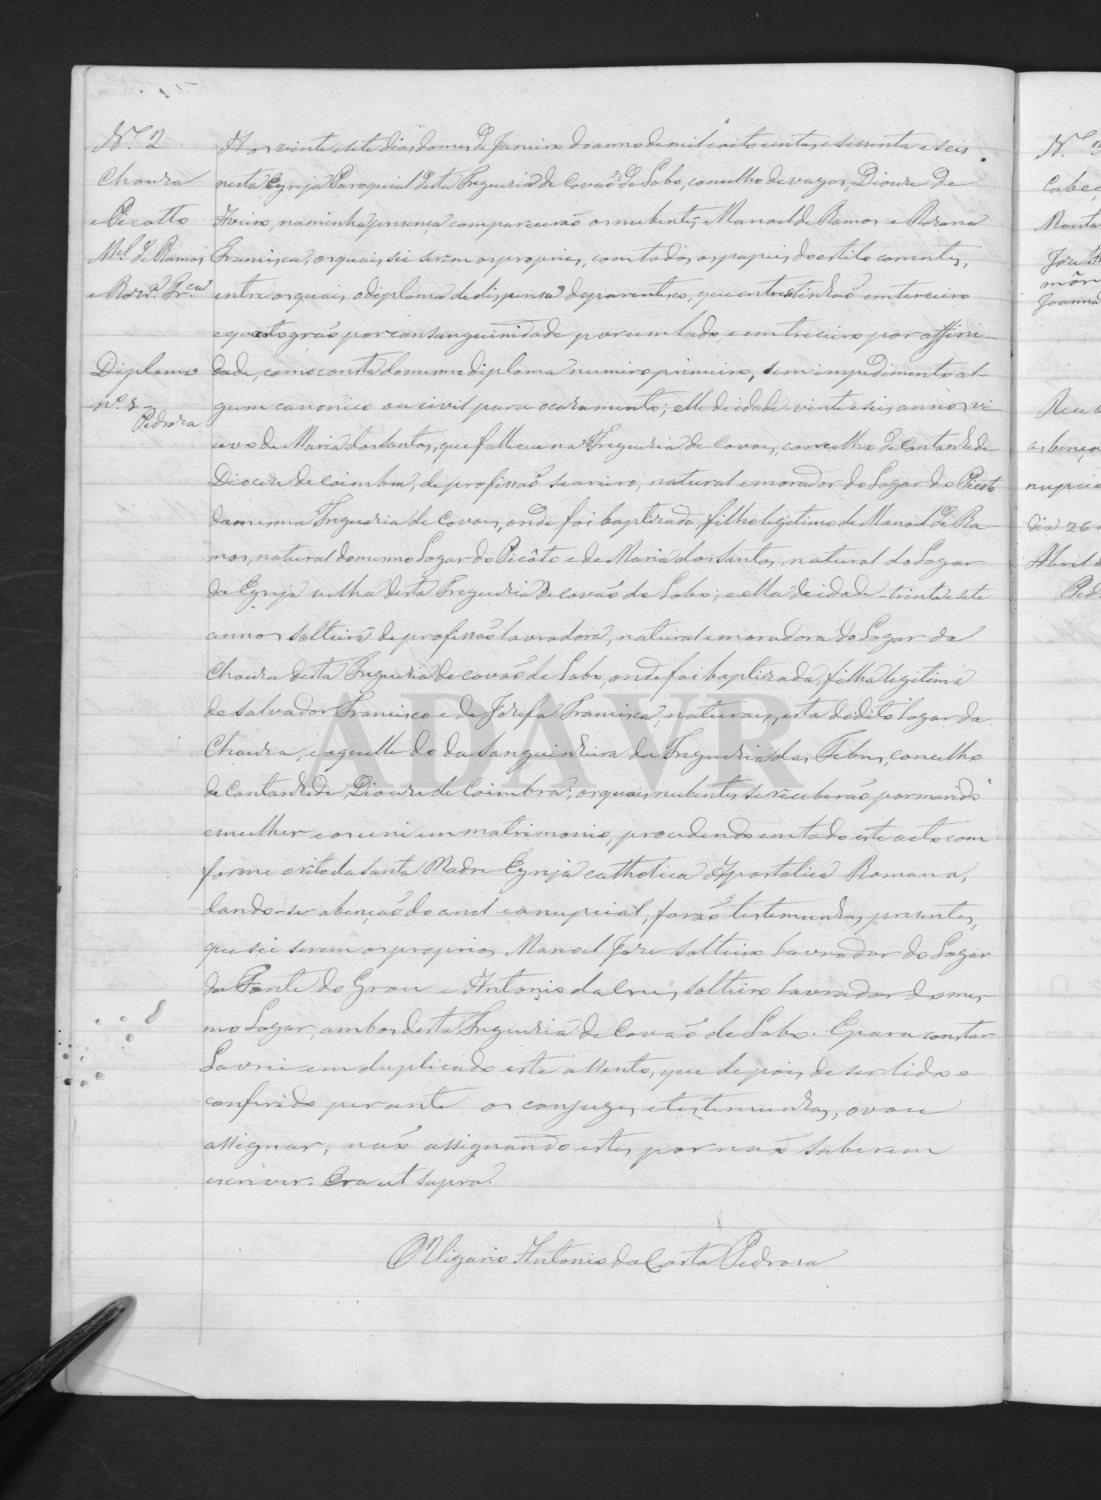 N.º 2
Choura
e Picotto
M.el de Ramos
e Roz.ª Fr.ca
Diploma
n.º 1
Pedroza
Aos vinte e sete dias do mes de Janeiro do anno de mil e oitocentos e sessenta e seis
nesta Egreja Paroquial desta Freguezia de Covão do Lobo, concelho de Vagos, Diocese de
Aveiro, na minha presença compareceráo os nubentes Manoel de Ramos e Rozaria
Francisca, os quais sei serem os proprios, com todos os papeis do estilo correntes,
entre os quais o diploma de dispensa de parentesco, que entre si tinhaõ em terceiro
e quarto graó por consanguinidade por um lado, e em treceiro por affini-
dade, como consta do mesmo diploma numero primeiro, sem impedimento al-
gum canonico ou civil para o casamento; elle de idade vinte e seis annos vi-
uvo de Maria dos Santos, que falleceu na Freguezia de Covoes, concelho de Cantanhede
Diocese de Coimbra, de profissaõ seareiro, natural e morador do Logar do Picoto
da mesma Freguezia de Covoes, onde foi baptizado, filho legitimo de Manoel de Ra-
mos, natural do mesmo Logar do Picôto e de Maria dos Santos, natural do Logar
da Egreja velha desta Freguezia de Covaõ do Lobo; e ella de idade trinta e sete
annos solteira de profissaõ lavradora, natural e moradora do Logar da
Choura desta Freguezia de Covaõ do Lobo, onde foi baptizada, filha legitima
de Salvador Francisco e de Jozefa Francisca, naturaes, esta do dito logar da
Choura, e aquelle do da Sanguinheira da Freguezia das Febres, concelho
de Cantanhede, Diocese de Coimbra; os quais nubentes se receberaõ por marido
e mulher e os uni em matrimonio, procedendo em todo este acto com
forme o rito da Santa Madre Egreja Catholica Apostolica Romana,
dando-se a bençaõ do anel e a nupcial, foraõ testemunhas presentes,
que sei serem os proprios Manoel Joze solteiro lavrador do Logar
da Fonte do Grou e Antonio da Crus, solteiro lavrador do mes-
mo Logar, ambos desta Freguezia de Covaõ do Lobo. E para constar
Lavrei em duplicado este assento, que depois de ser lido e
conferido perante os conjuges e testemunhas, o vou
assignar, naõ assignando estes por naõ saberem
escrever. Era ut supra.
O Vigario Antonio da Costa Pedroza
ADAVR